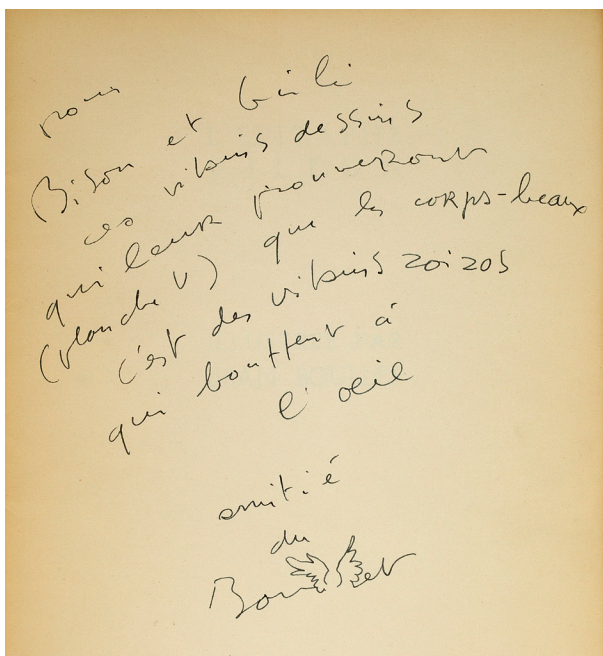 pour
Bison et
ces vilains dessins
qui leur prouveront
(planche V) que les corps-beaux
c'est des vilains zoizos
qui bouffent à
l'oeil
amitié
du